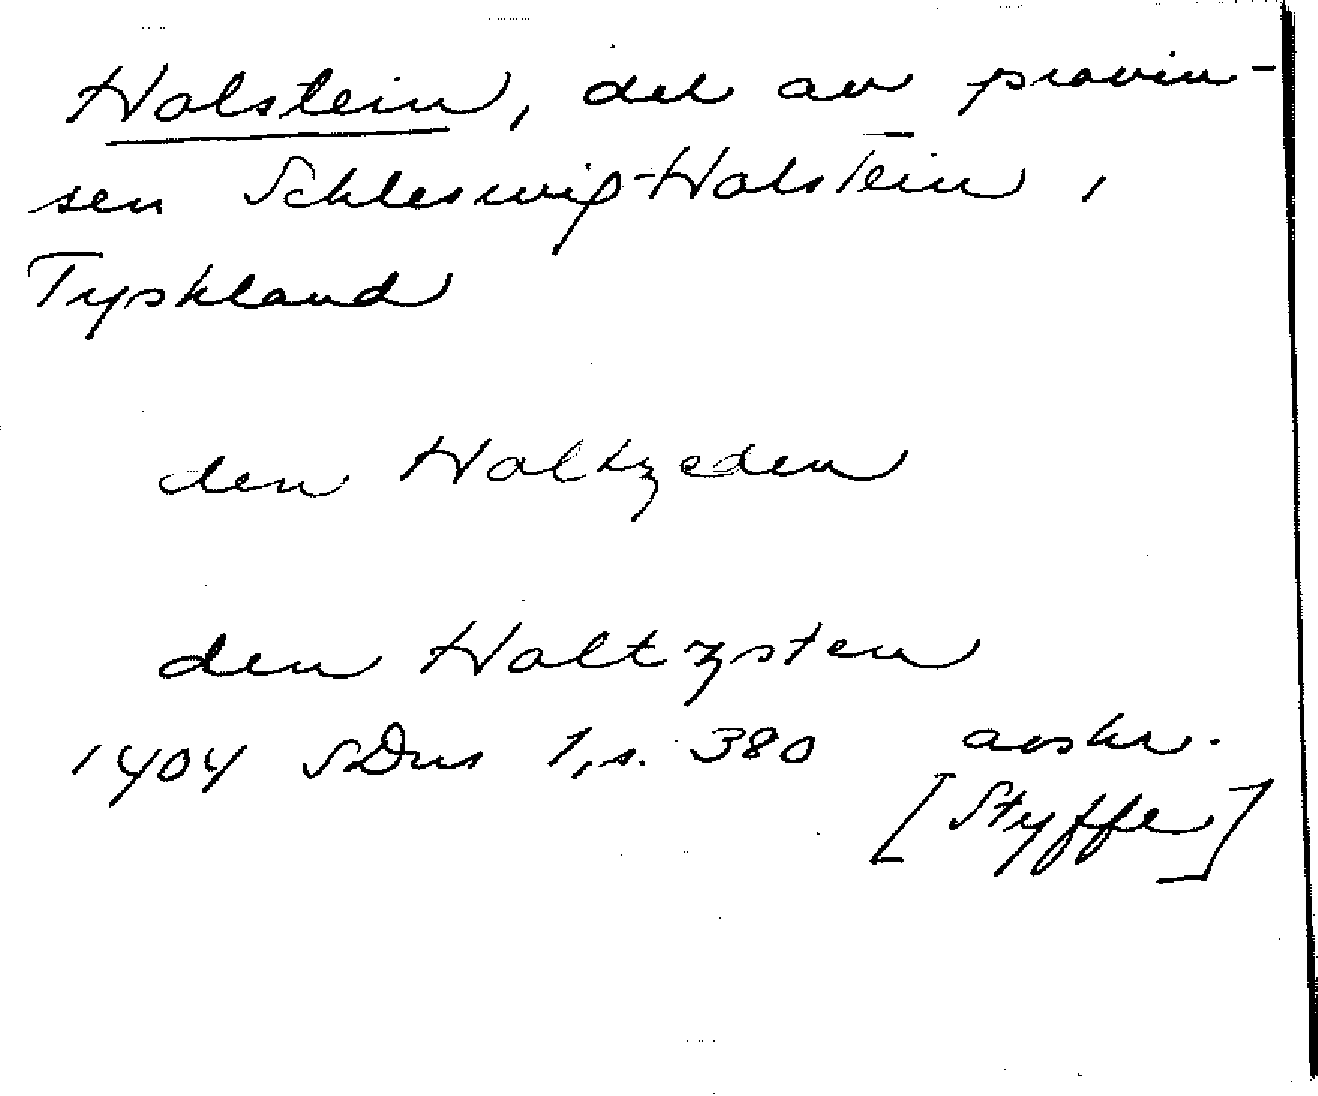 Holstein, del av provin-
sen Schleswig-Holstein,
Tyskland
den Holtzeden
den Holtzsten
1404 SDns 1, s. 380 avskr.
[Styffe]